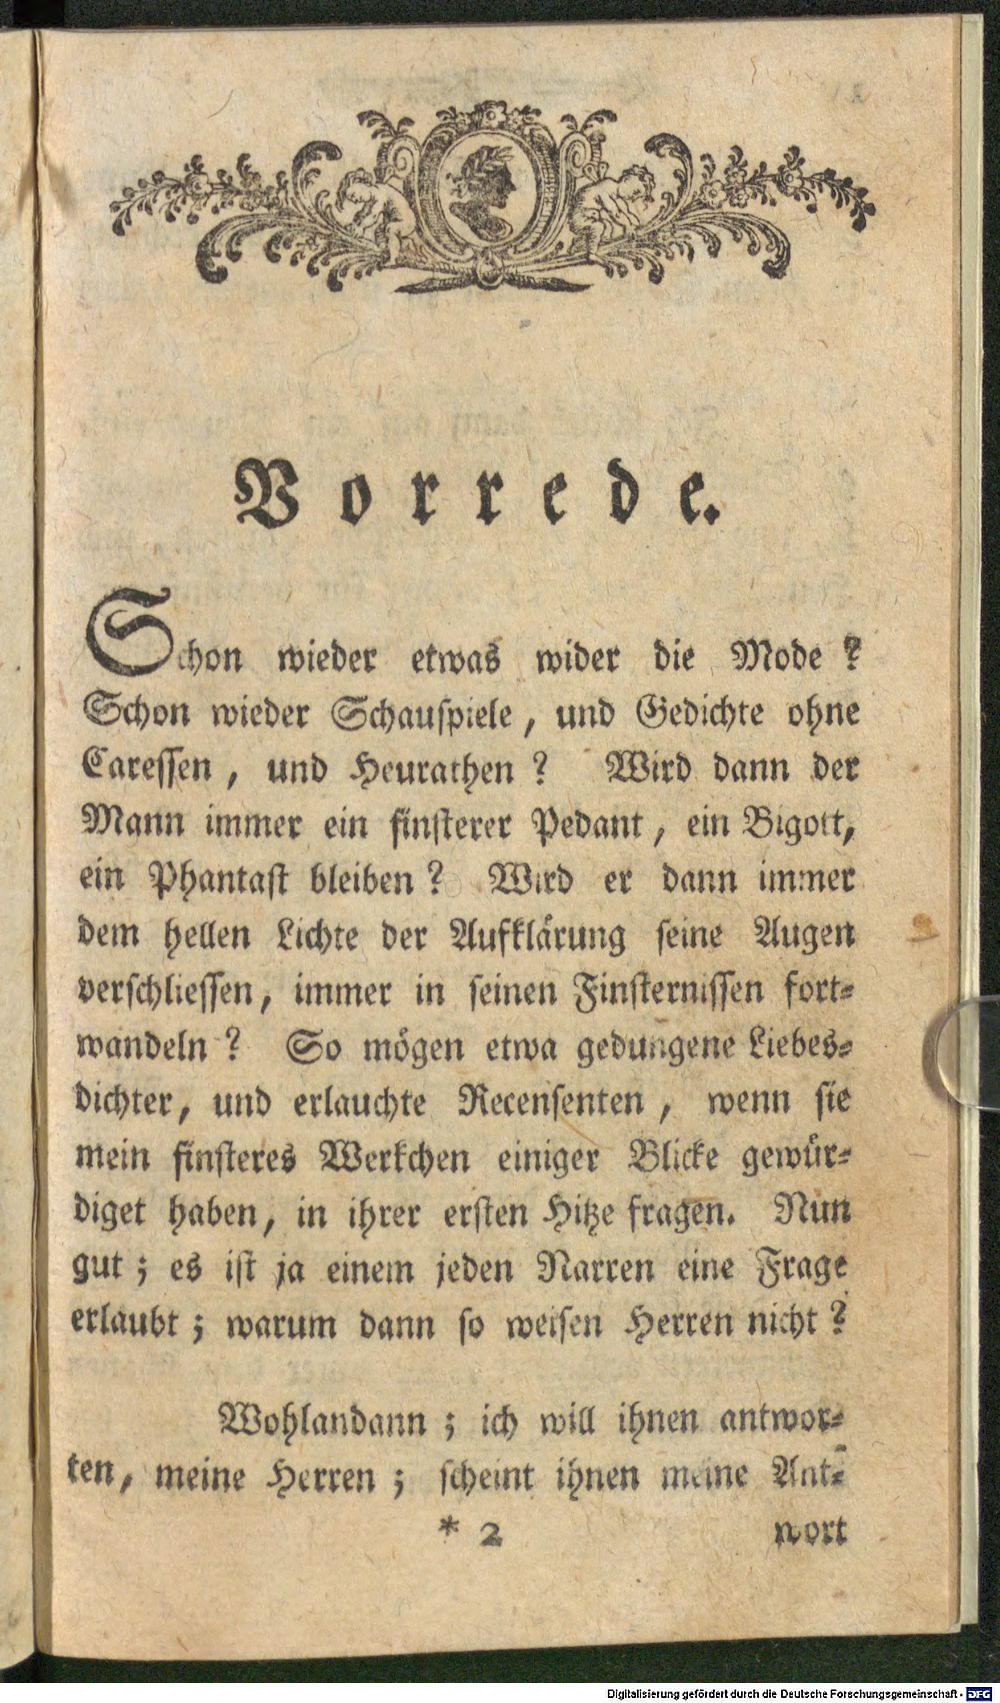 Vorrede.
Schon wieder etwas wider die Mode?
Schon wieder Schauspiele, und Gedichte ohne
Caressen, und Heurathen? Wird dann der
Mann immer ein finsterer Pedant, ein Bigott,
ein Phantast bleiben? Wird er dann immer
dem hellen Lichte der Aufklärung seine Augen
verschliessen, immer in seinen Finsternissen fort-
wandeln? So mögen etwa gedungene Liebes-
dichter, und erlauchte Recensenten, wenn sie
mein finsteres Werkchen einiger Blicke gewür-
diget haben, in ihrer ersten Hitze fragen. Nun
gut; es ist ja einem jeden Narren eine Frage
erlaubt; warum dann so weisen Herren nicht?
Wohlandann; ich will ihnen antwor-
ten, meine Herren; scheint ihnen meine Ant-
* 2 wort
Digitalisierung gefördert durch die Deutsche Forschungsgemeinschaft - DFG